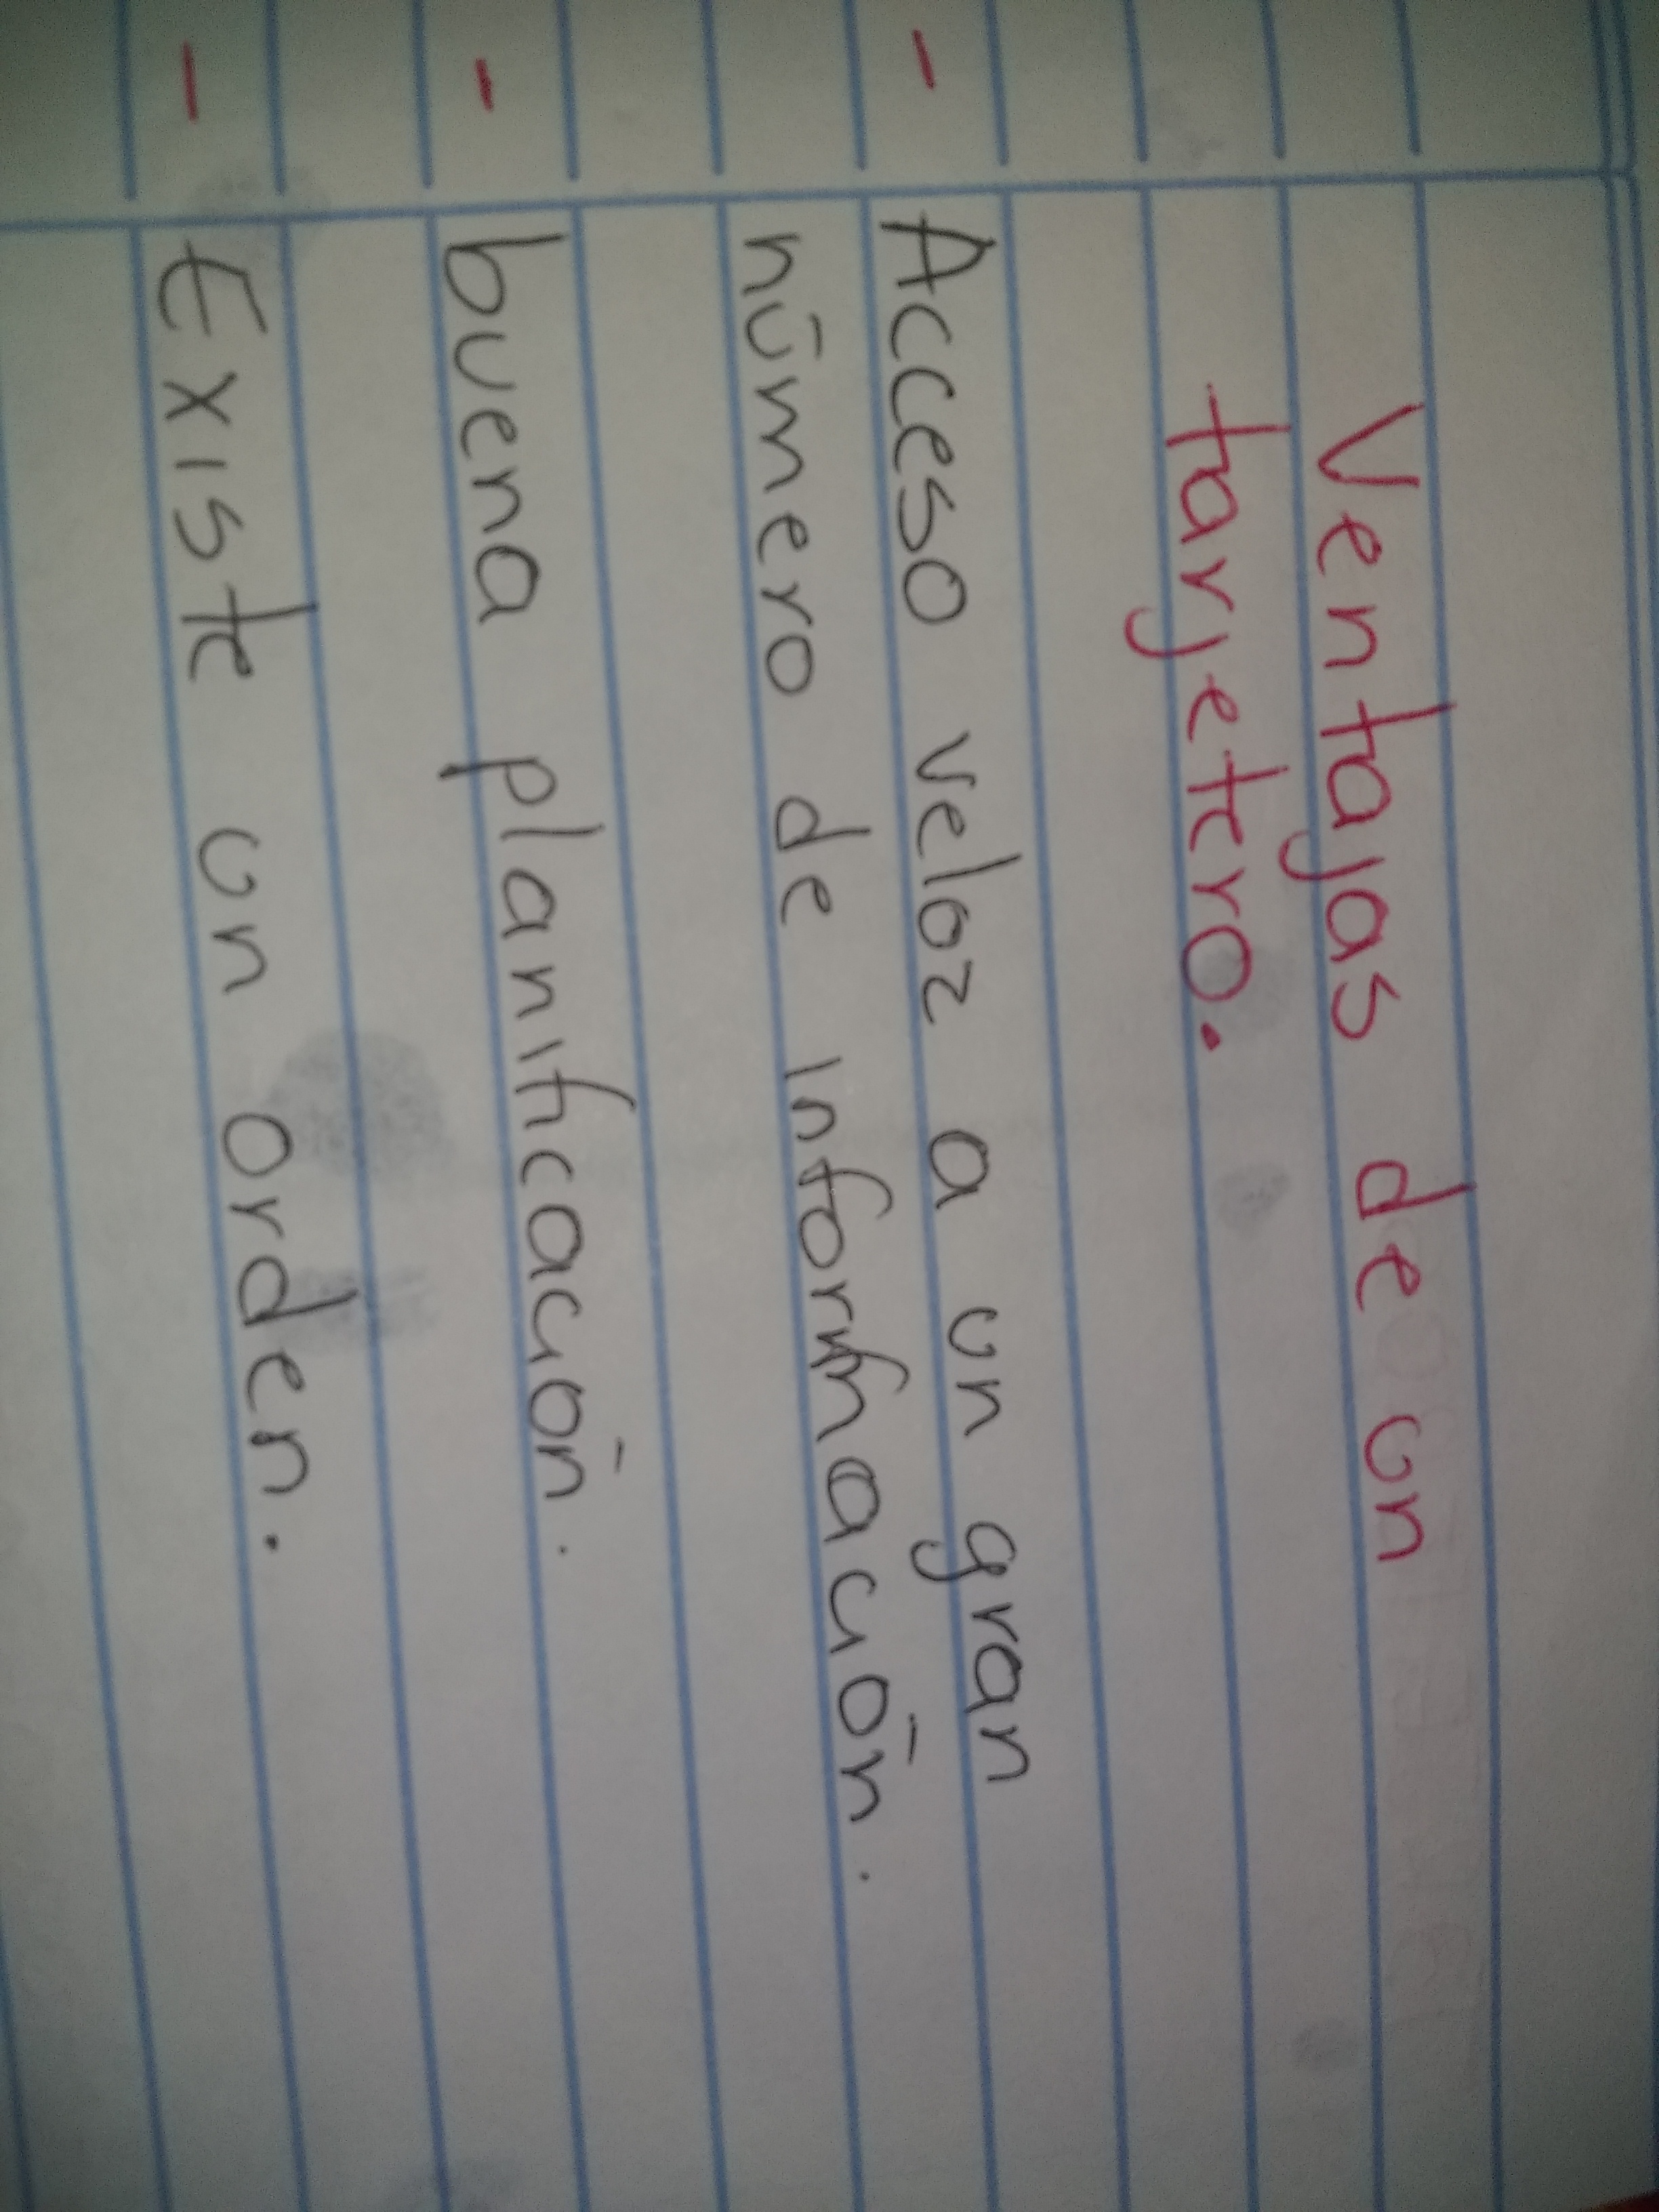 Ventajas de un
tarjetero.
- Acceso veloz a un gran
número de información.
- buena planificación.
- Existe un orden.